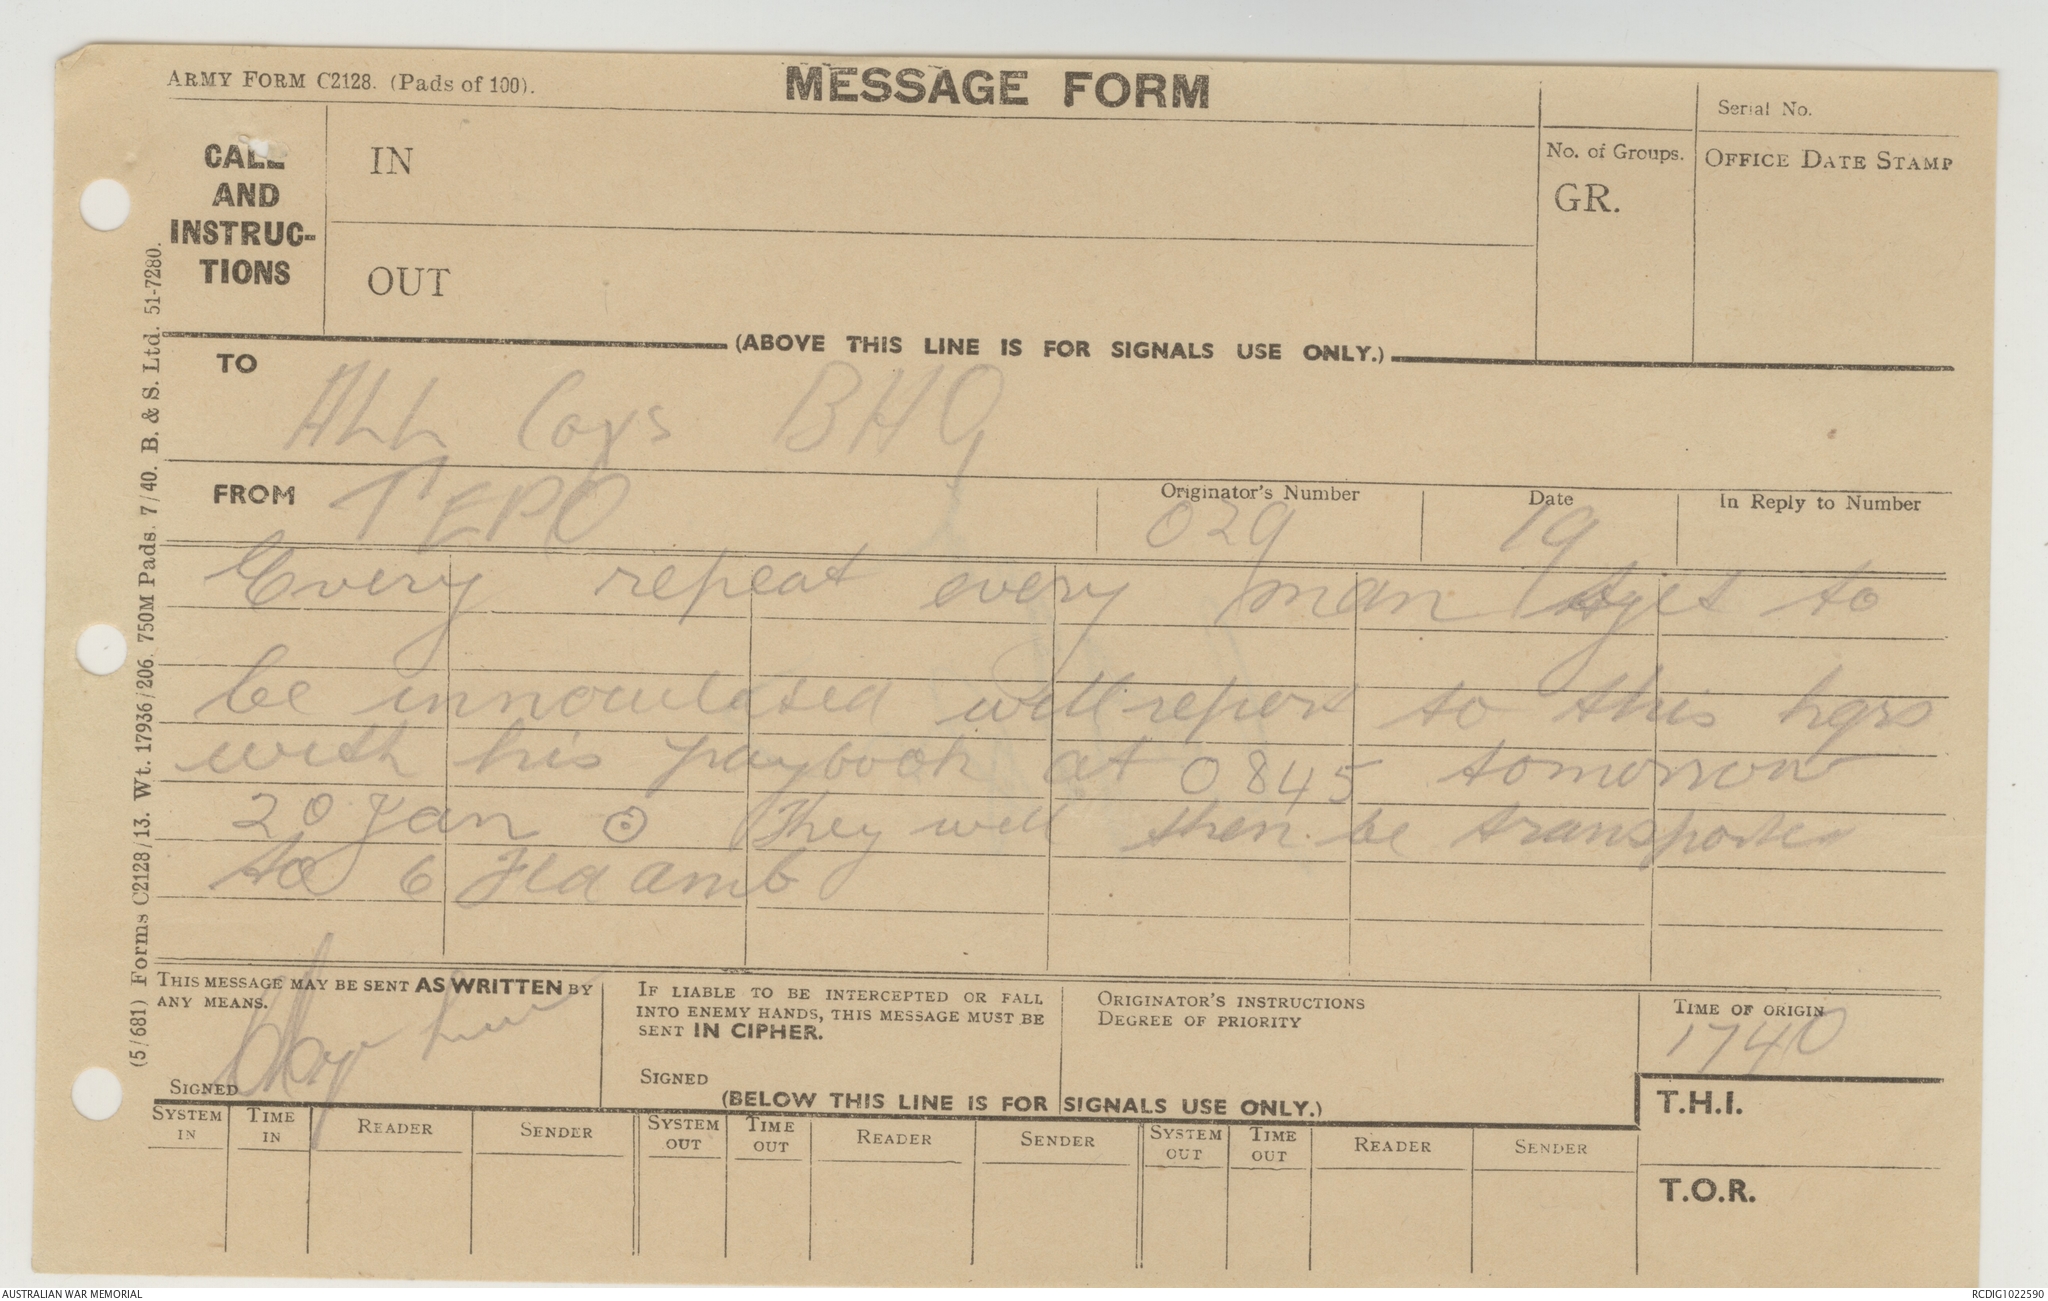 ARMY FORM C2128. (Pads of 100).
MESSAGE FORM
Serial No.
CALL AND INSTRUC-TIONS
IN
OUT
No. of Groups.
GR.
OFFICE DATE STAMP
(ABOVE THIS LINE IS FOR SIGNALS USE ONLY.)
TO
ALL Coys BHQ
FROM TEPO
Originator's Number
029
Date
19
In Reply to Number
Every repeat every man yet to
be innoculated will report to this hqrs
with his paybook at 0845 tomorrow
20 Jan ⊙ They will then be transported
to 6 Fld amb
THIS MESSAGE MAY BE SENT AS WRITTEN BY
ANY MEANS.
SIGNED
IF LIABLE TO BE INTERCEPTED OR FALL
INTO ENEMY HANDS, THIS MESSAGE MUST BE
SENT IN CIPHER.
SIGNED
ORIGINATOR'S INSTRUCTIONS
DEGREE OF PRIORITY
TIME OF ORIGIN
1740
(BELOW THIS LINE IS FOR SIGNALS USE ONLY.)
T.H.I.
T.O.R.
SYSTEM IN
TIME IN
READER
SENDER
SYSTEM OUT
TIME OUT
READER
SENDER
SYSTEM OUT
TIME OUT
READER
SENDER
(5/681) Forms C2128/13. Wt. 17936/206. 750M Pads. 7/40. B. & S. Ltd. 51-7280.
AUSTRALIAN WAR MEMORIAL
RCDIG1022590